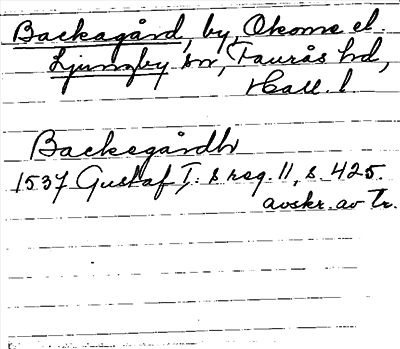 Backagård, by, Okome el.
Ljungby sn, Faurås hd,
Hall. l.
Backegårdh
1537 Gustaf I:s reg. 11, s. 425.
avskr. av Tr.